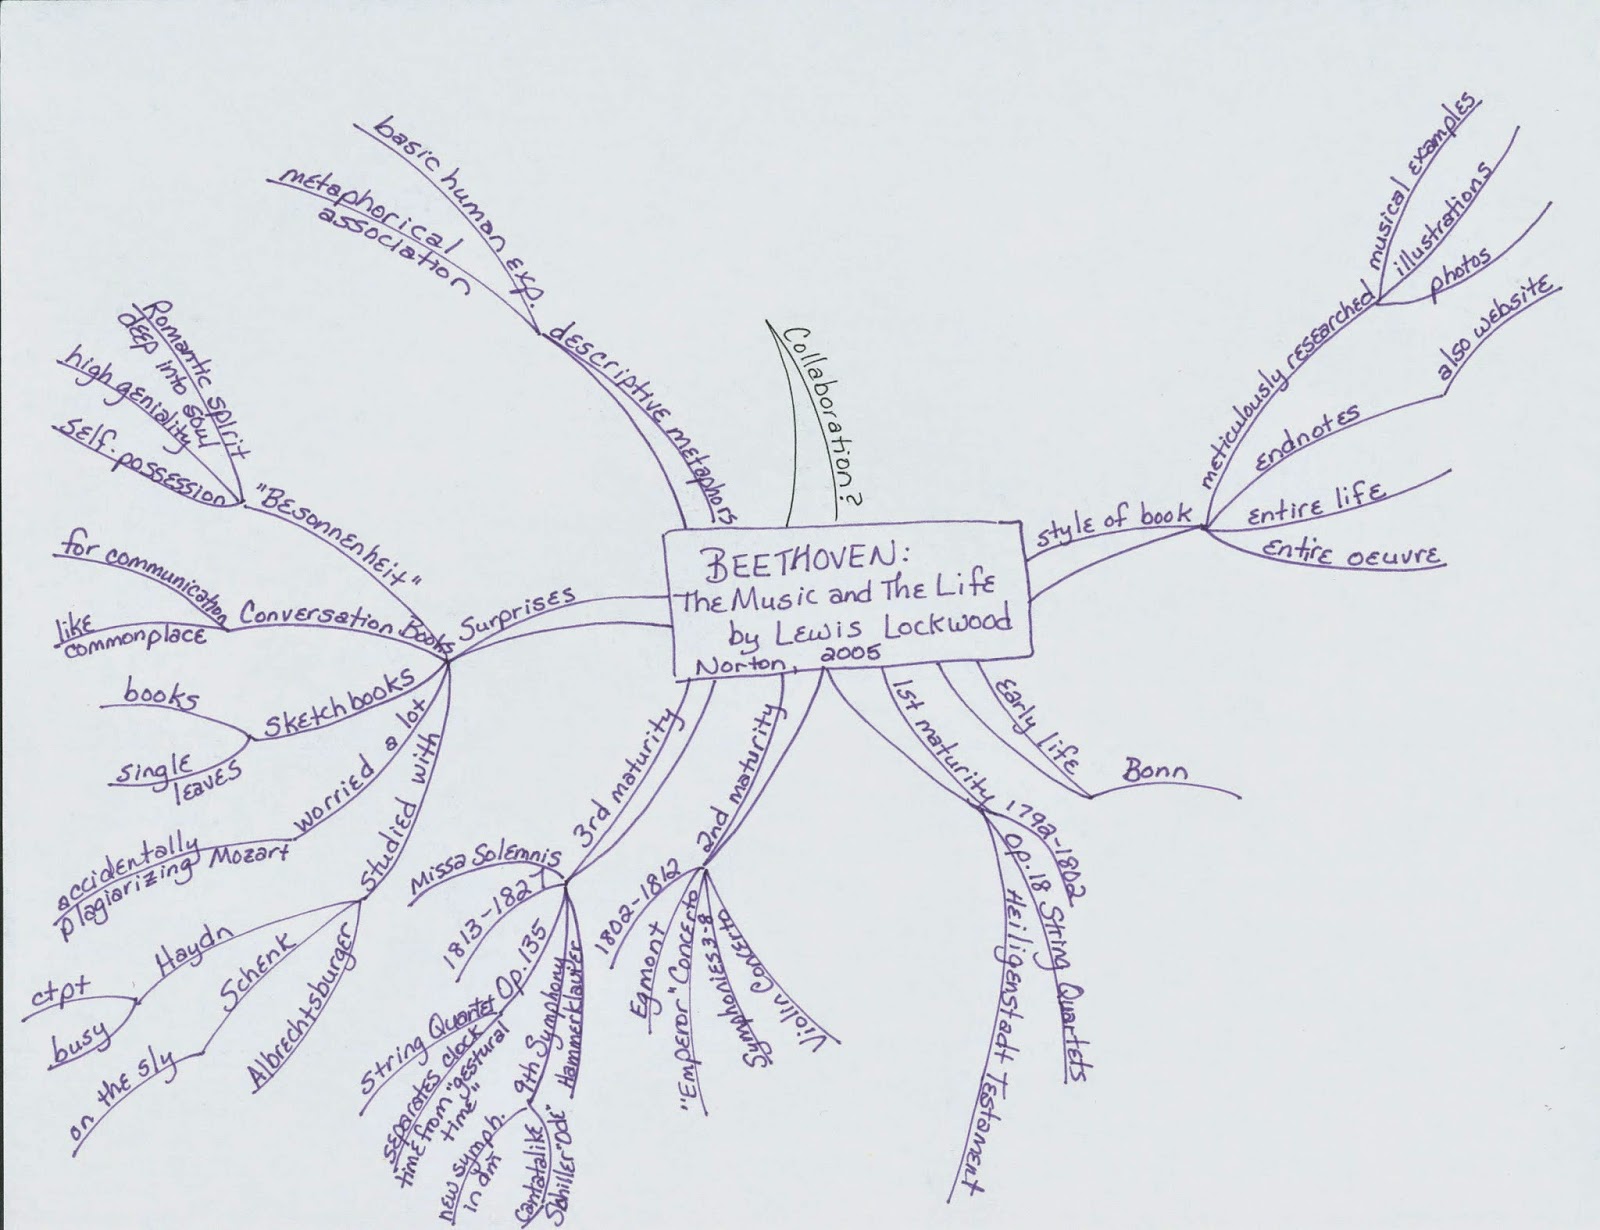 BEETHOVEN:
The Music and The Life
by Lewis Lockwood
Norton, 2005
Collaboration?
style of book
meticulously researched
musical examples
illustrations
photos
endnotes
also website
entire life
entire oeuvre
early life
Bonn
1st maturity
1792-1802
Op. 18 String Quartets
Heiligenstadt Testament
2nd maturity
1802-1812
Egmont
"Emperor" Concerto
Symphonies 3-8
Violin Concerto
3rd maturity
Missa Solemnis
1813-1827
String Quartet Op. 135
separates clock
time from "gestural
time"
9th Symphony
new symph.
in dm
Cantatalike
Schiller "Ode"
Hammerklavier
Surprises
"Besonnenheit"
Romantic spirit
deep into soul
high geniality
self-possession
Conversation Books
for communication
like
commonplace
Sketchbooks
books
single
leaves
worried a lot
accidentally
plagiarizing Mozart
studied with
Haydn
ctpt
busy
Schenk
on the sly
Albrechtsburger
descriptive metaphors
basic human exp.
metaphorical
association